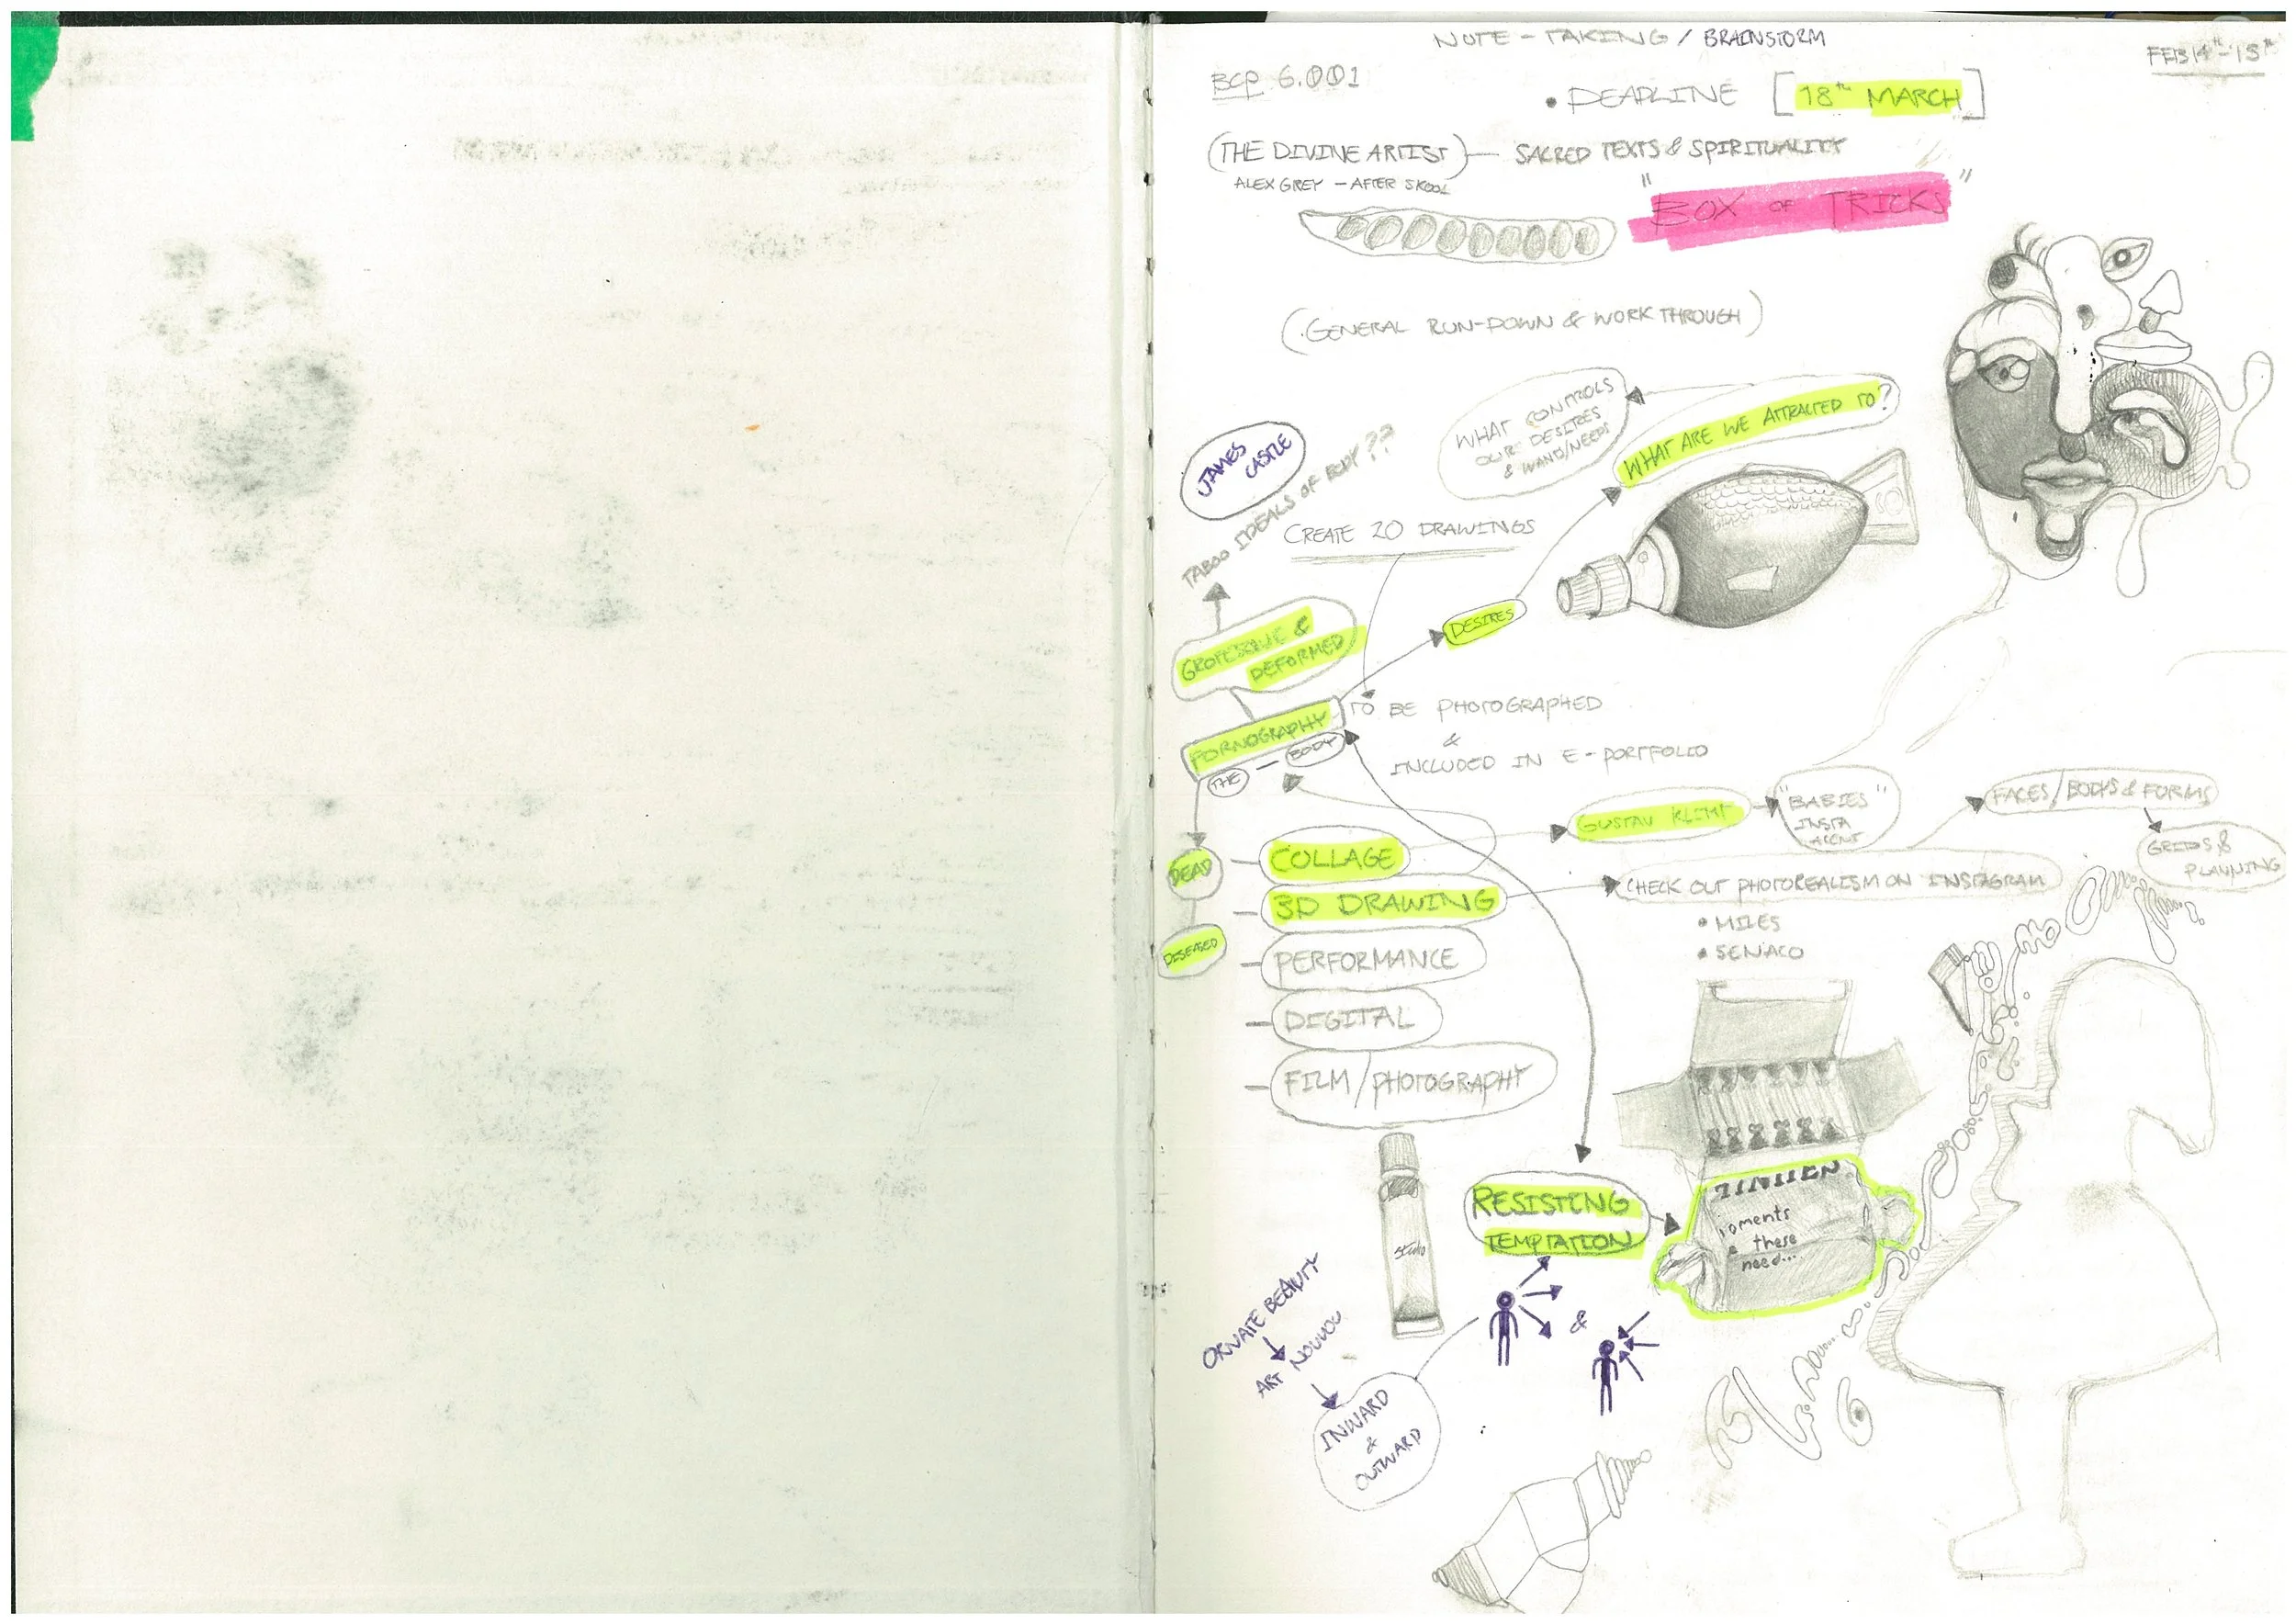 NOTE-TAKING / BRAINSTORM
FEB 14th-15th
BCP 6.001
• DEADLINE [18th MARCH]
(THE DIVINE ARTIST) — SACRED TEXTS & SPIRITUALITY
ALEX GREY - AFTER SKOOL
"BOX OF TRICKS"
(GENERAL RUN-DOWN & WORK THROUGH)
WHAT CONTROLS
OUR DESIRES
& WANTS/NEEDS
WHAT ARE WE ATTRACTED TO?
JAMES
CASTLE
TABOO IDEALS OF BODY??
CREATE 20 DRAWINGS
DESIRES
GROTESQUE &
DEFORMED
PORNOGRAPHY
THE — BODY
TO BE PHOTOGRAPHED
&
INCLUDED IN E-PORTFOLIO
GUSTAV KLIMT
"BABIES"
INSTA
FACES/BODYS & FORMS
GRIDS &
PLANNING
DEAD
DISEASED
- COLLAGE
- 3D DRAWING
CHECK OUT PHOTOREALISM ON INSTAGRAM
• MILES
• SENACO
- PERFORMANCE
- DIGITAL
- FILM/PHOTOGRAPHY
RESISTING
TEMPTATION
oments
e these
need...
Studio
&
ORNATE BEAUTY
ART NOUVOU
INWARD
&
OUTWARD